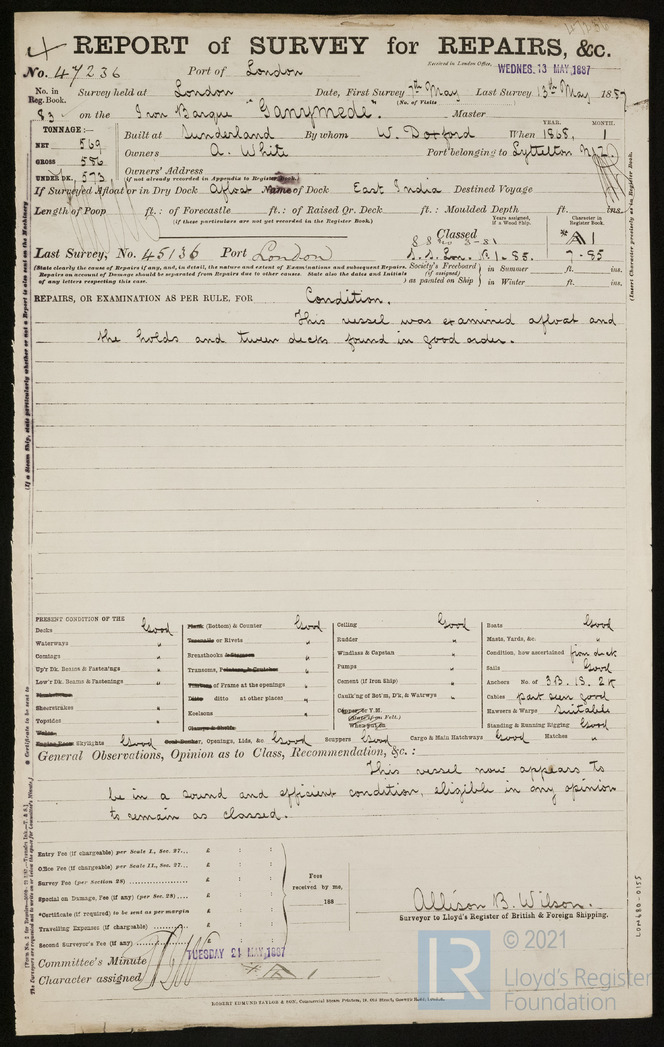 REPORT of SURVEY for REPAIRS, &c.
No. 47236 Port of London Received in London Office, WEDNES. 13 MAY, 1887
No. in Reg. Book. Survey held at London Date, First Survey 7th May Last Survey 13th May 1887
(No. of Visits
83 on the Iron Barque "Ganymede". Master
TONNAGE:— YEAR. MONTH.
NET 569 Built at Sunderland By whom W. Doxford When 1868, 1
GROSS 586 Owners A. White Port belonging to Lyttelton N.Z.
Owners' Address
UNDER DK. 573 (if not already recorded in Appendix to Register Book.)
If Surveyed Afloat or in Dry Dock Afloat Name of Dock East India Destined Voyage
Length of Poop ft.: of Forecastle ft.: of Raised Qr. Deck ft.: Moulded Depth ft. ins.
(if these particulars are not yet recorded in the Register Book.) Years assigned, if a Wood Ship. Character in Register Book.
Classed A 1
Last Survey, No. 45136 Port London S.S. Lon. 1-85. 7-85
(State clearly the cause of Repairs if any, and, in detail, the nature and extent of Examinations and subsequent Repairs.
Repairs on account of Damage should be separated from Repairs due to other causes. State also the dates and Initials
of any letters respecting this case.
Society's Freeboard (if assigned) as painted on Ship } in Summer ft. ins.
in Winter ft. ins.
REPAIRS, OR EXAMINATION AS PER RULE, FOR Condition.
This vessel was examined afloat and
the holds and tween decks found in good order.
PRESENT CONDITION OF THE
Decks Good
Waterways "
Comings "
Up'r Dk. Beams & Fasten'ngs "
Low'r Dk. Beams & Fastenings "
Sheerstrakes "
Topsides "
Wales
Engine Room Skylights Good
Plank (Bottom) & Counter Good
Treenails or Rivets "
Breasthooks & Stemson "
Transoms, Pointers, & Crutches "
Timbers of Frame at the openings "
Ditto ditto at other places "
Keelsons "
Coal Bunker, Openings, Lids, &c Good
Ceiling Good
Rudder "
Windlass & Capstan "
Pumps "
Cement (if Iron Ship) "
Caulk'ng of Bot'm, D'k, & Watrwys "
Copper or Y.M.
(State if on Felt.)
When put on
Scuppers Good
Cargo & Main Hatchways Good
Boats Good
Masts, Yards, &c. "
Condition, how ascertained from deck
Sails Good
Anchors No. of 3B. 1S. 2K
Cables part seen good
Hawsers & Warps Suitable
Standing & Running Rigging Good
Hatches "
General Observations, Opinion as to Class, Recommendation, &c.:
This vessel now appears to
be in a sound and efficient condition, eligible in my opinion
to remain as classed.
Entry Fee (if chargeable) per Scale I., Sec. 27... £ : :
Office Fee (if chargeable) per Scale II., Sec. 27... £ : :
Survey Fee (per Section 28) £ : :
Special on Damage, Fee (if any) (per Sec. 28).... £ : :
*Certificate (if required) to be sent as per margin £ : :
Travelling Expenses (if chargeable) £ : :
Second Surveyor's Fee (if any) £ : :
Fees received by me, 188
Allison B. Wilson.
Surveyor to Lloyd's Register of British & Foreign Shipping.
Committee's Minute TUESDAY 21 MAY, 1887
Character assigned
ROBERT EDMUND TAYLOR & SON, Commercial Steam Printers, 19, Old Street, Goswell Road, London.
LON480-0155
LR © 2021
Lloyd's Register
Foundation